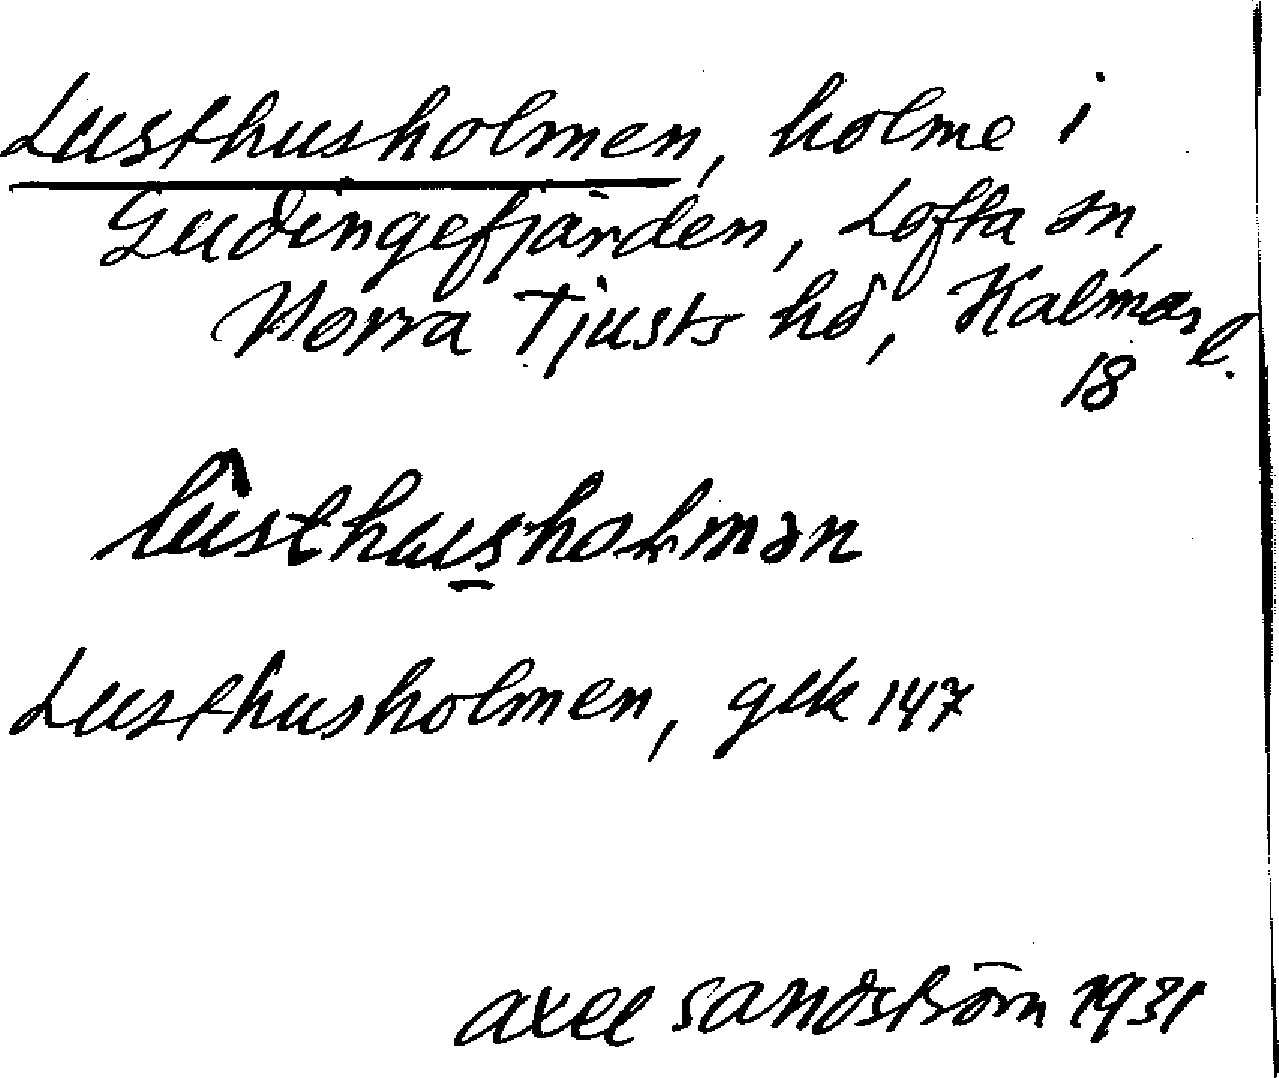 Lusthusholmen, holme i
Gudingefjärden, Lofta sn,
Norra Tjusts hd, Kalmar l.
18
lusthusholmən
Lusthusholmen, gek 147
Axel Sandström 1931